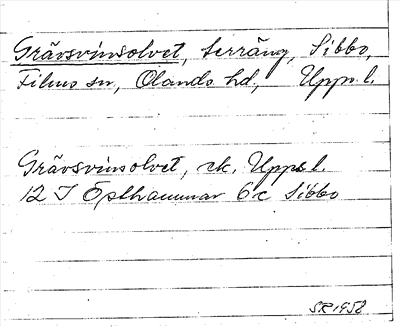 Grävsvinsolvet, terräng, Sibbo,
Films sn, Olands hd, Upps. l.
Grävsvinsolvet, ek. Upps. l.
12 I Östhammar 6 c Sibbo
SR 1958